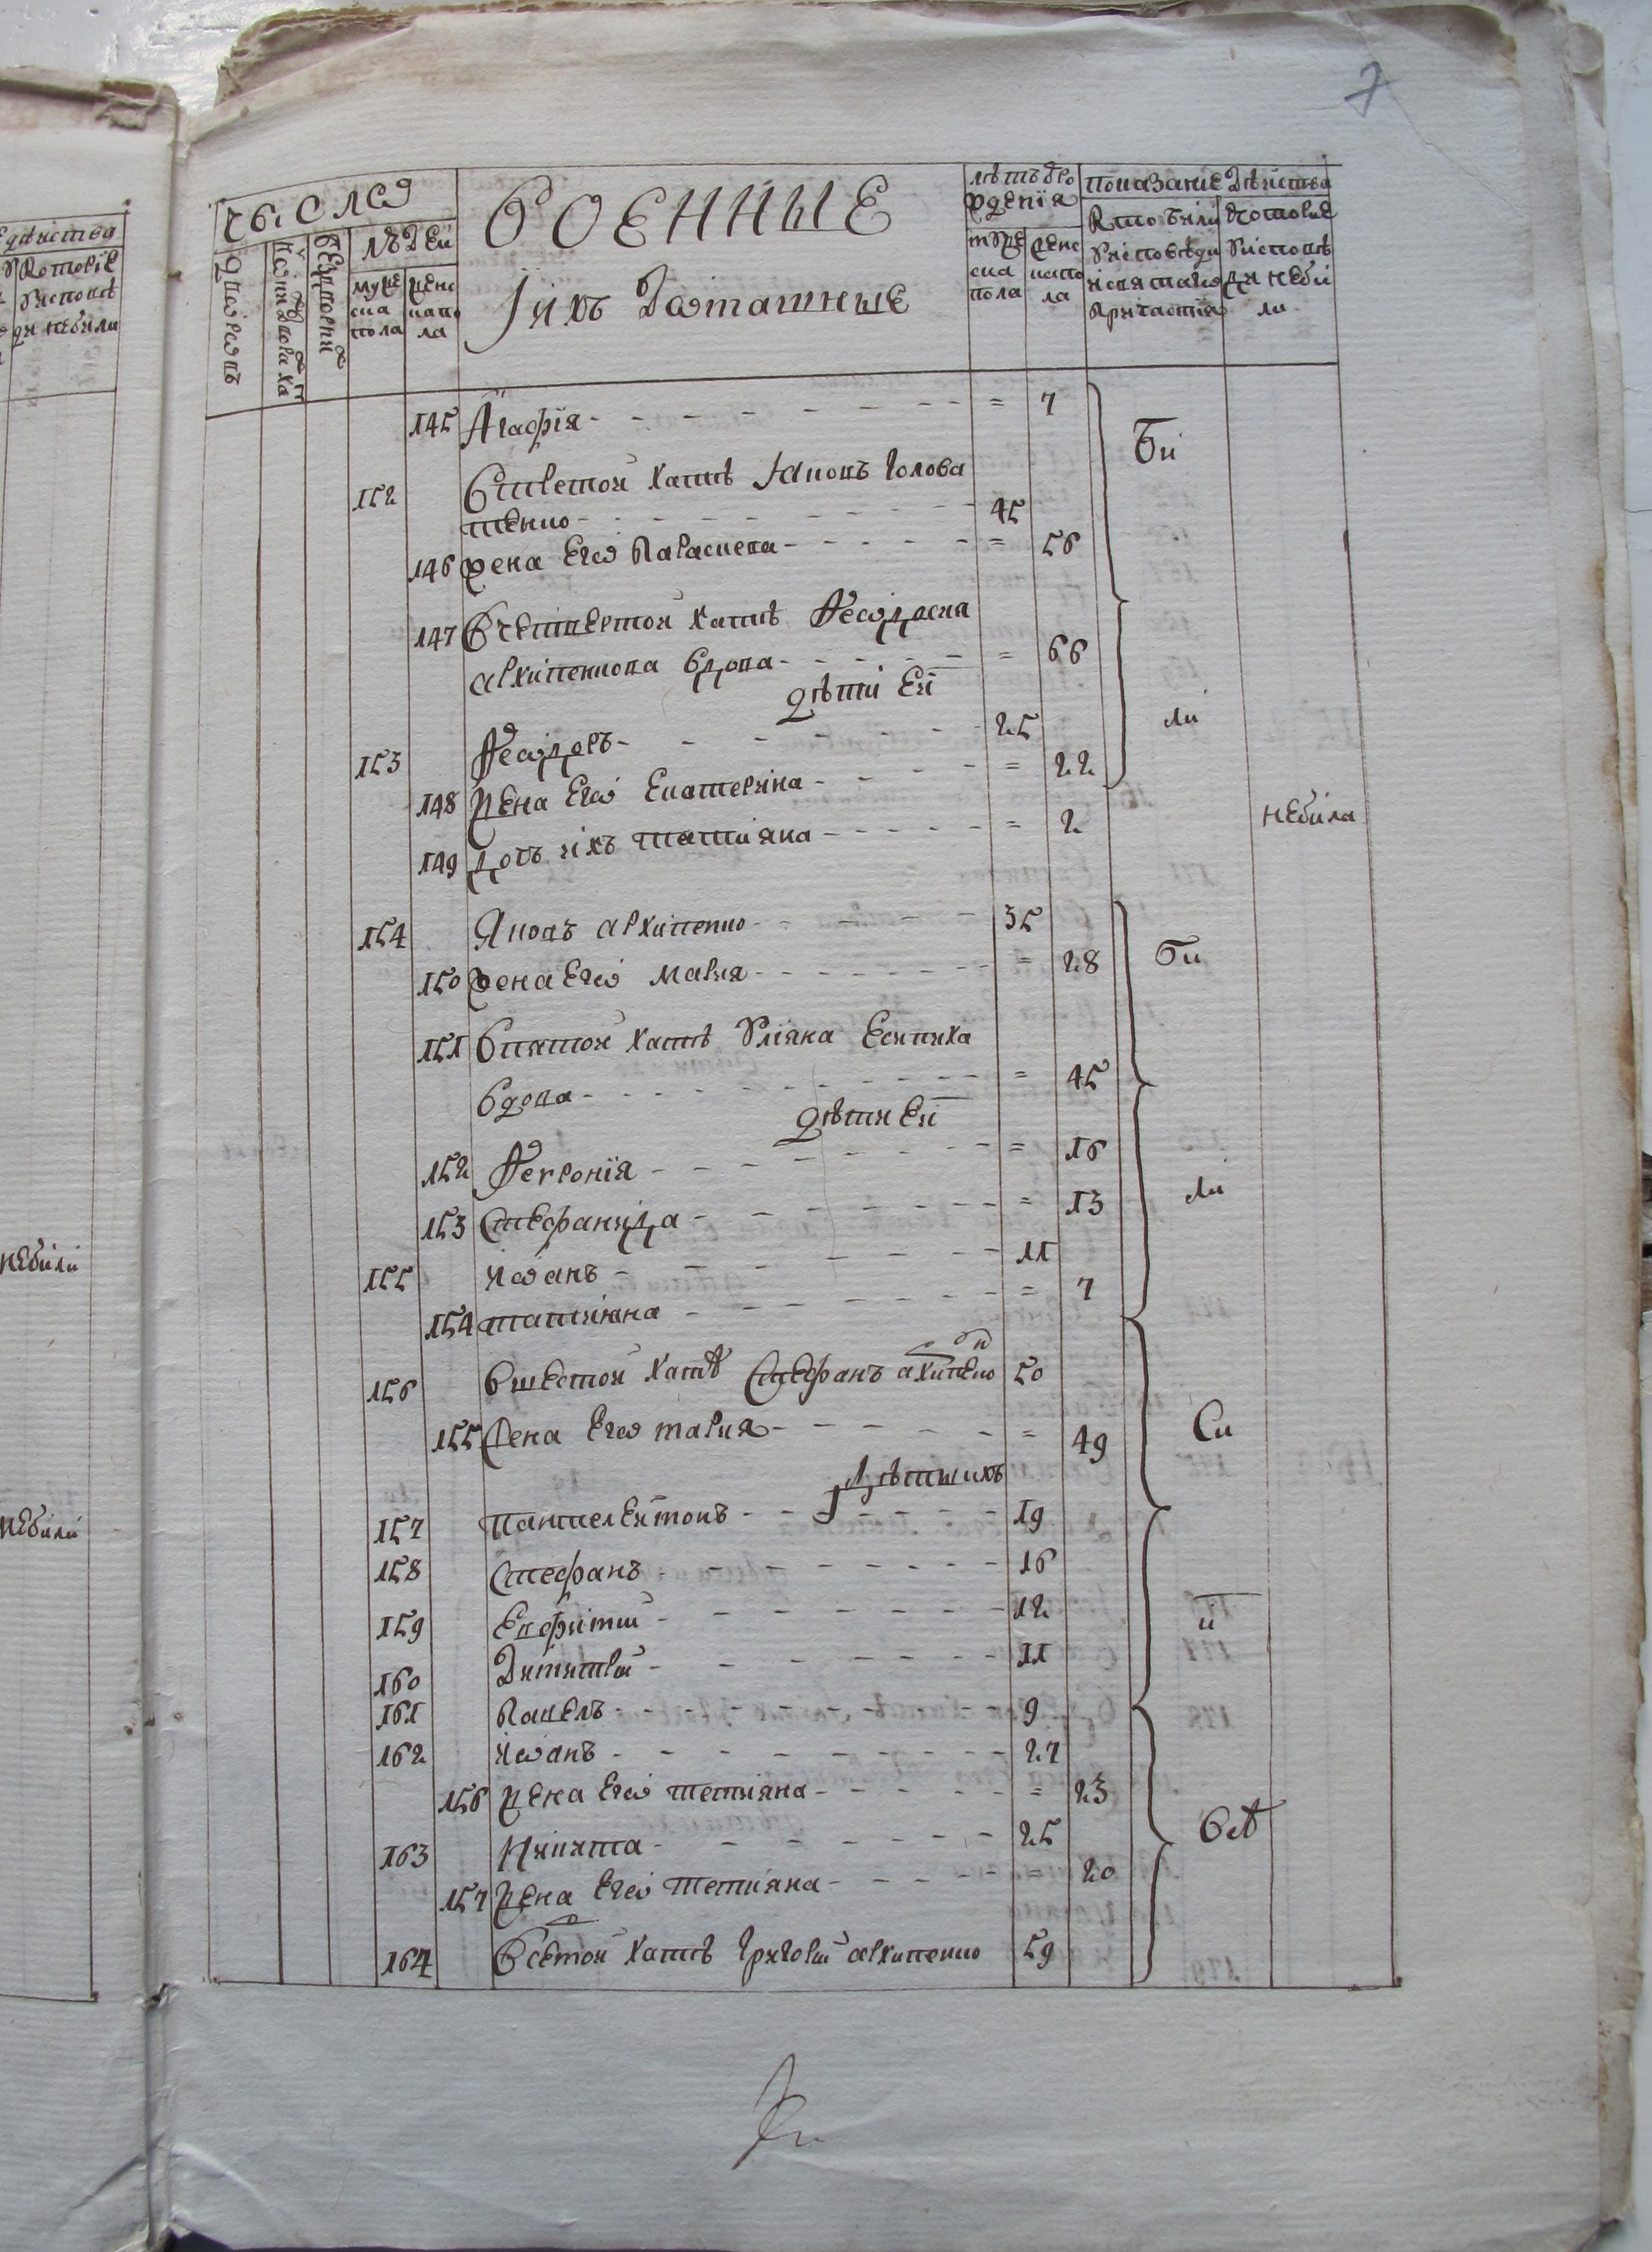 7
Числа
Военные
И ихъ домашние
лѣтъ ро
ждения
показание действа
людей
дворовъ
муже
ска
пола
женс
каго
по
ла
муже
ска
пола
женс
каго
по
ла
Кто были
у исповѣди
и святаго
причастия
Которие
у исповѣ
ди неби
ли
145 Агафія - 7
152 В третой хатѣ Яковъ Голова
тенко - 45
146 жена его Параскева - 56
147 В четвертой хатѣ Феодосия
архипенкова вдова - 66
дѣти Ей
153 Феодоръ - 25
148 жена Его Екатерина - 22
149 дочъ ихъ Татияна - 2
небила
154 Яковъ архипенко - 35
150 жена Его Мария - 28
151 В пятой хатѣ Улияна Есипиха
вдова - 45
дѣти Ей
152 Февронія - 16
153 Стефанида - 13
155 Иоанъ - 11
154 Татияна - 7
156 В шестой хатѣ Стефанъ архипенко 50
155 жена Его Мария - 49
дѣти ихъ
157 Пантелеимонъ - 19
158 Стефанъ - 16
159 Евфимий - 12
160 Димитрий - 11
161 Павелъ - 9
162 Иоанъ - 27
156 жена Его Тетияна - 23
163 Никита - 25
157 жена Его Тетияна - 20
164 В семой хатѣ Григорий архипенко 59
Би
ли
Би
ли
Си
и
Всѣ
небили
небили